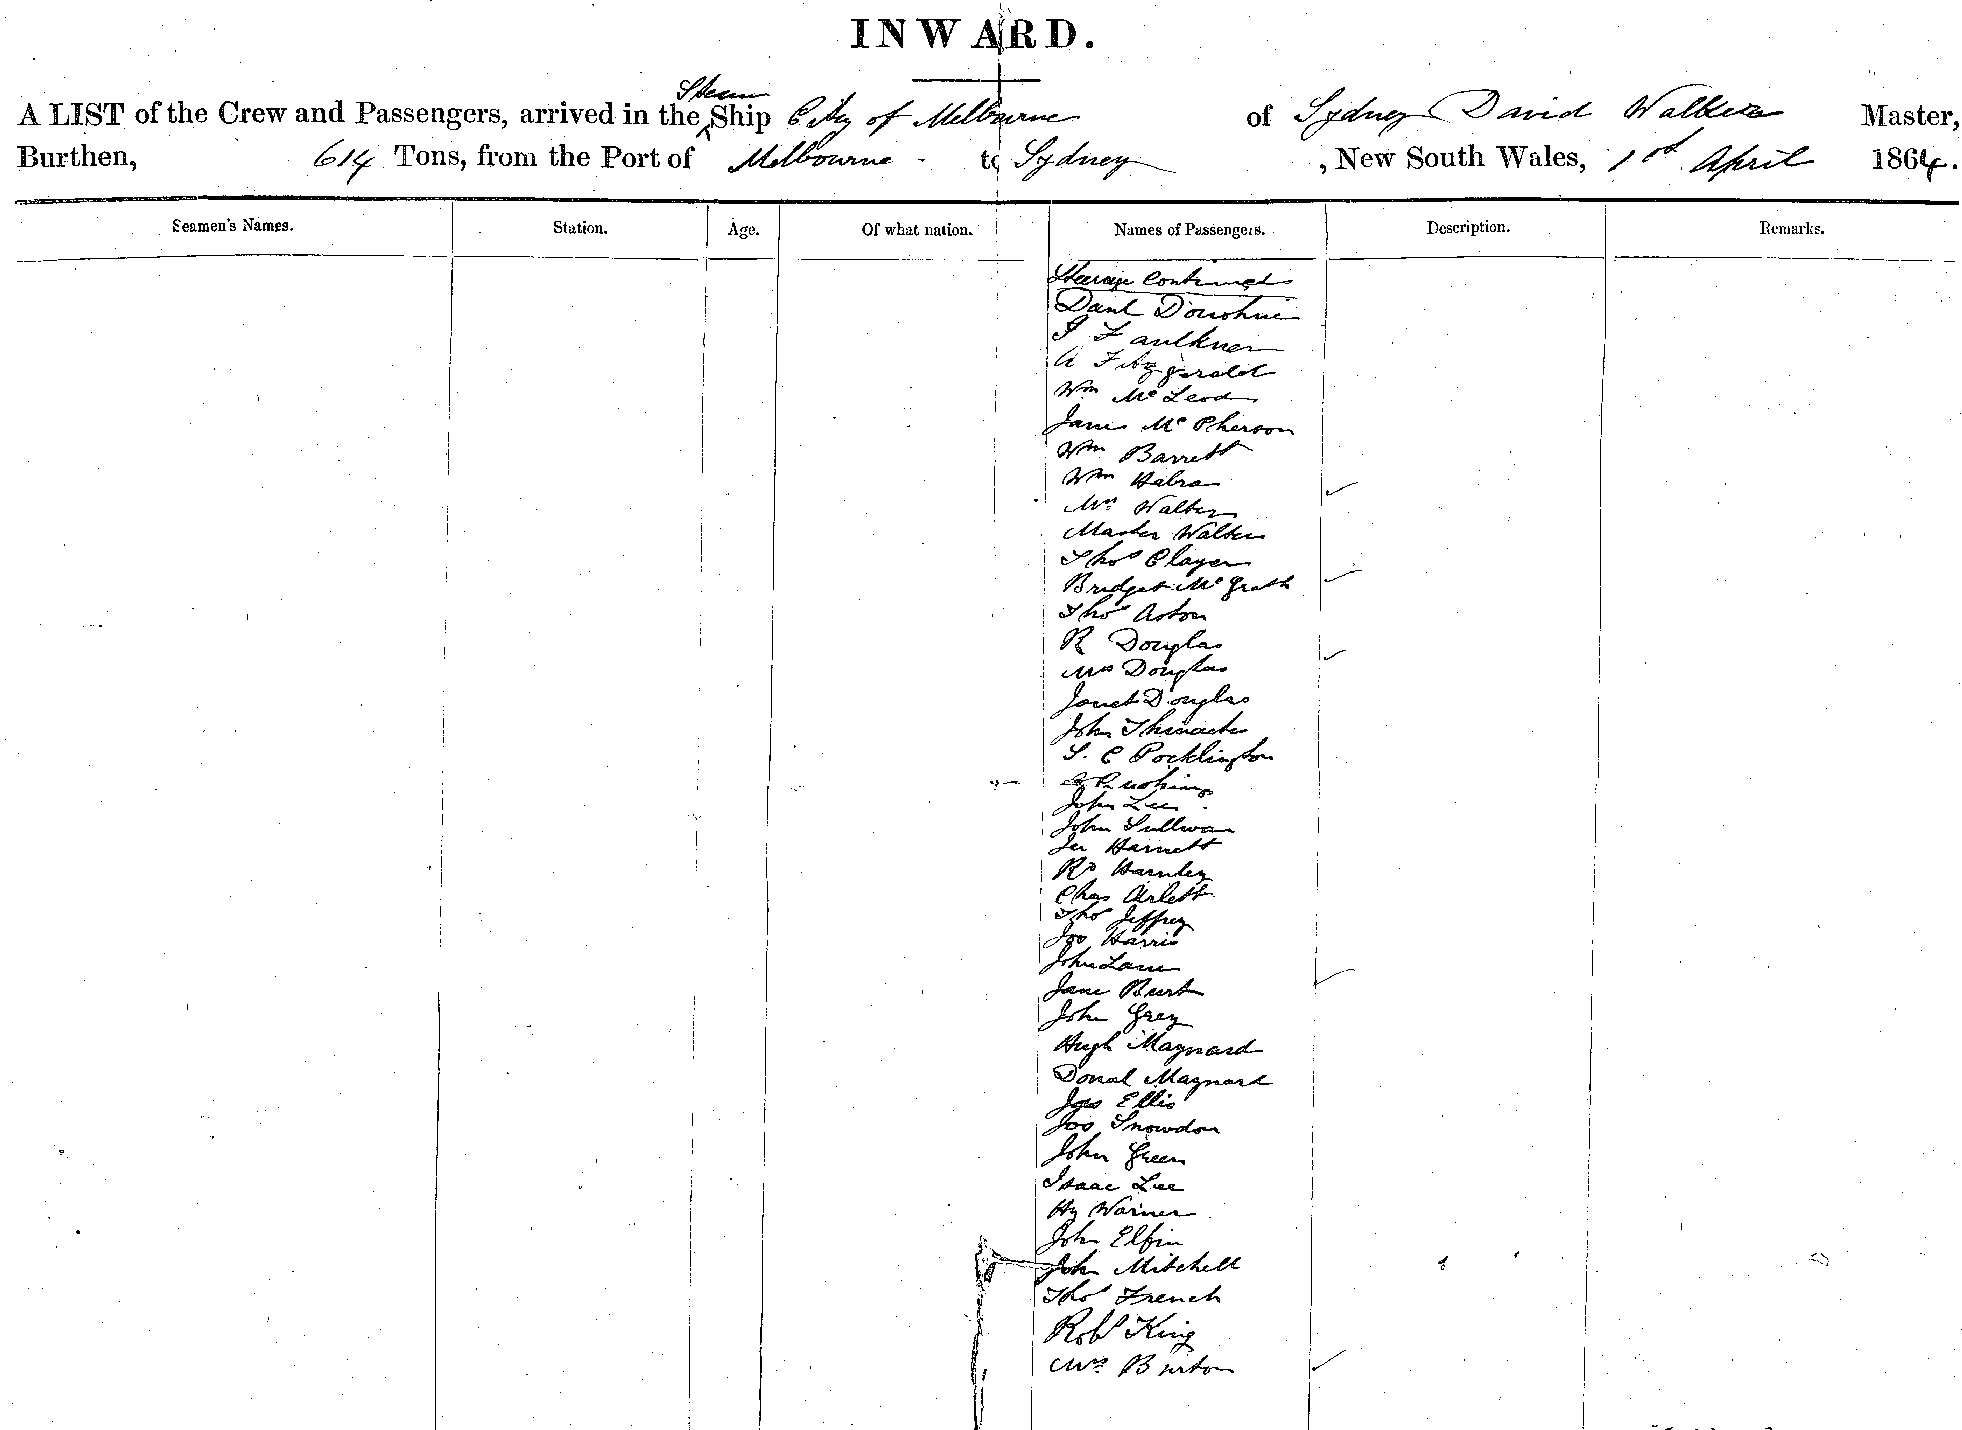 INWARD.
Steam
A LIST of the Crew and Passengers, arrived in the Ship City of Melbourne of Sydney David Walker Master,
Burthen, 614 Tons, from the Port of Melbourne to Sydney, New South Wales, 1st April 1864.
Seamen's Names. Station. Age. Of what nation. Names of Passengers. Description. Remarks.
Steerage Continued
Danl Donohue
J Faulkner
A Fitzgerald
Wm McLeod
James McPherson
Wm Barrett
Wm
Mrs Walters
Master Walters
Thos Player
Bridget McGrath
Thos Aston
R Douglas
Mrs Douglas
Janet Douglas
John
S. C Pocklington
Cushing
John Lee
John Sullivan
Jer Harnett
Rd Harnley
Chas Arlett
Thos Jeffrey
Jos Harris
John Lane
Jane Burt
John Grey
Hugh Maynard
Donal Maynard
Jos Ellis
Jos Snowdon
John Green
Isaac Lee
Hy Warner
John Elfin
John Mitchell
Thos French
Robt King
Mrs Burton